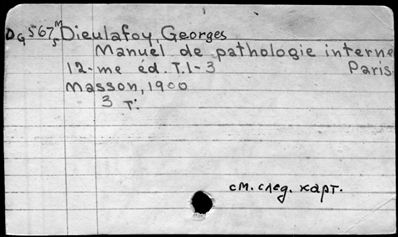 DG 567 M/5 Dieulafoy, Georges
Manuel de pathologie interne
12-me éd. T. 1-3 Paris
Masson, 1900
3 T.
см. след. карт.